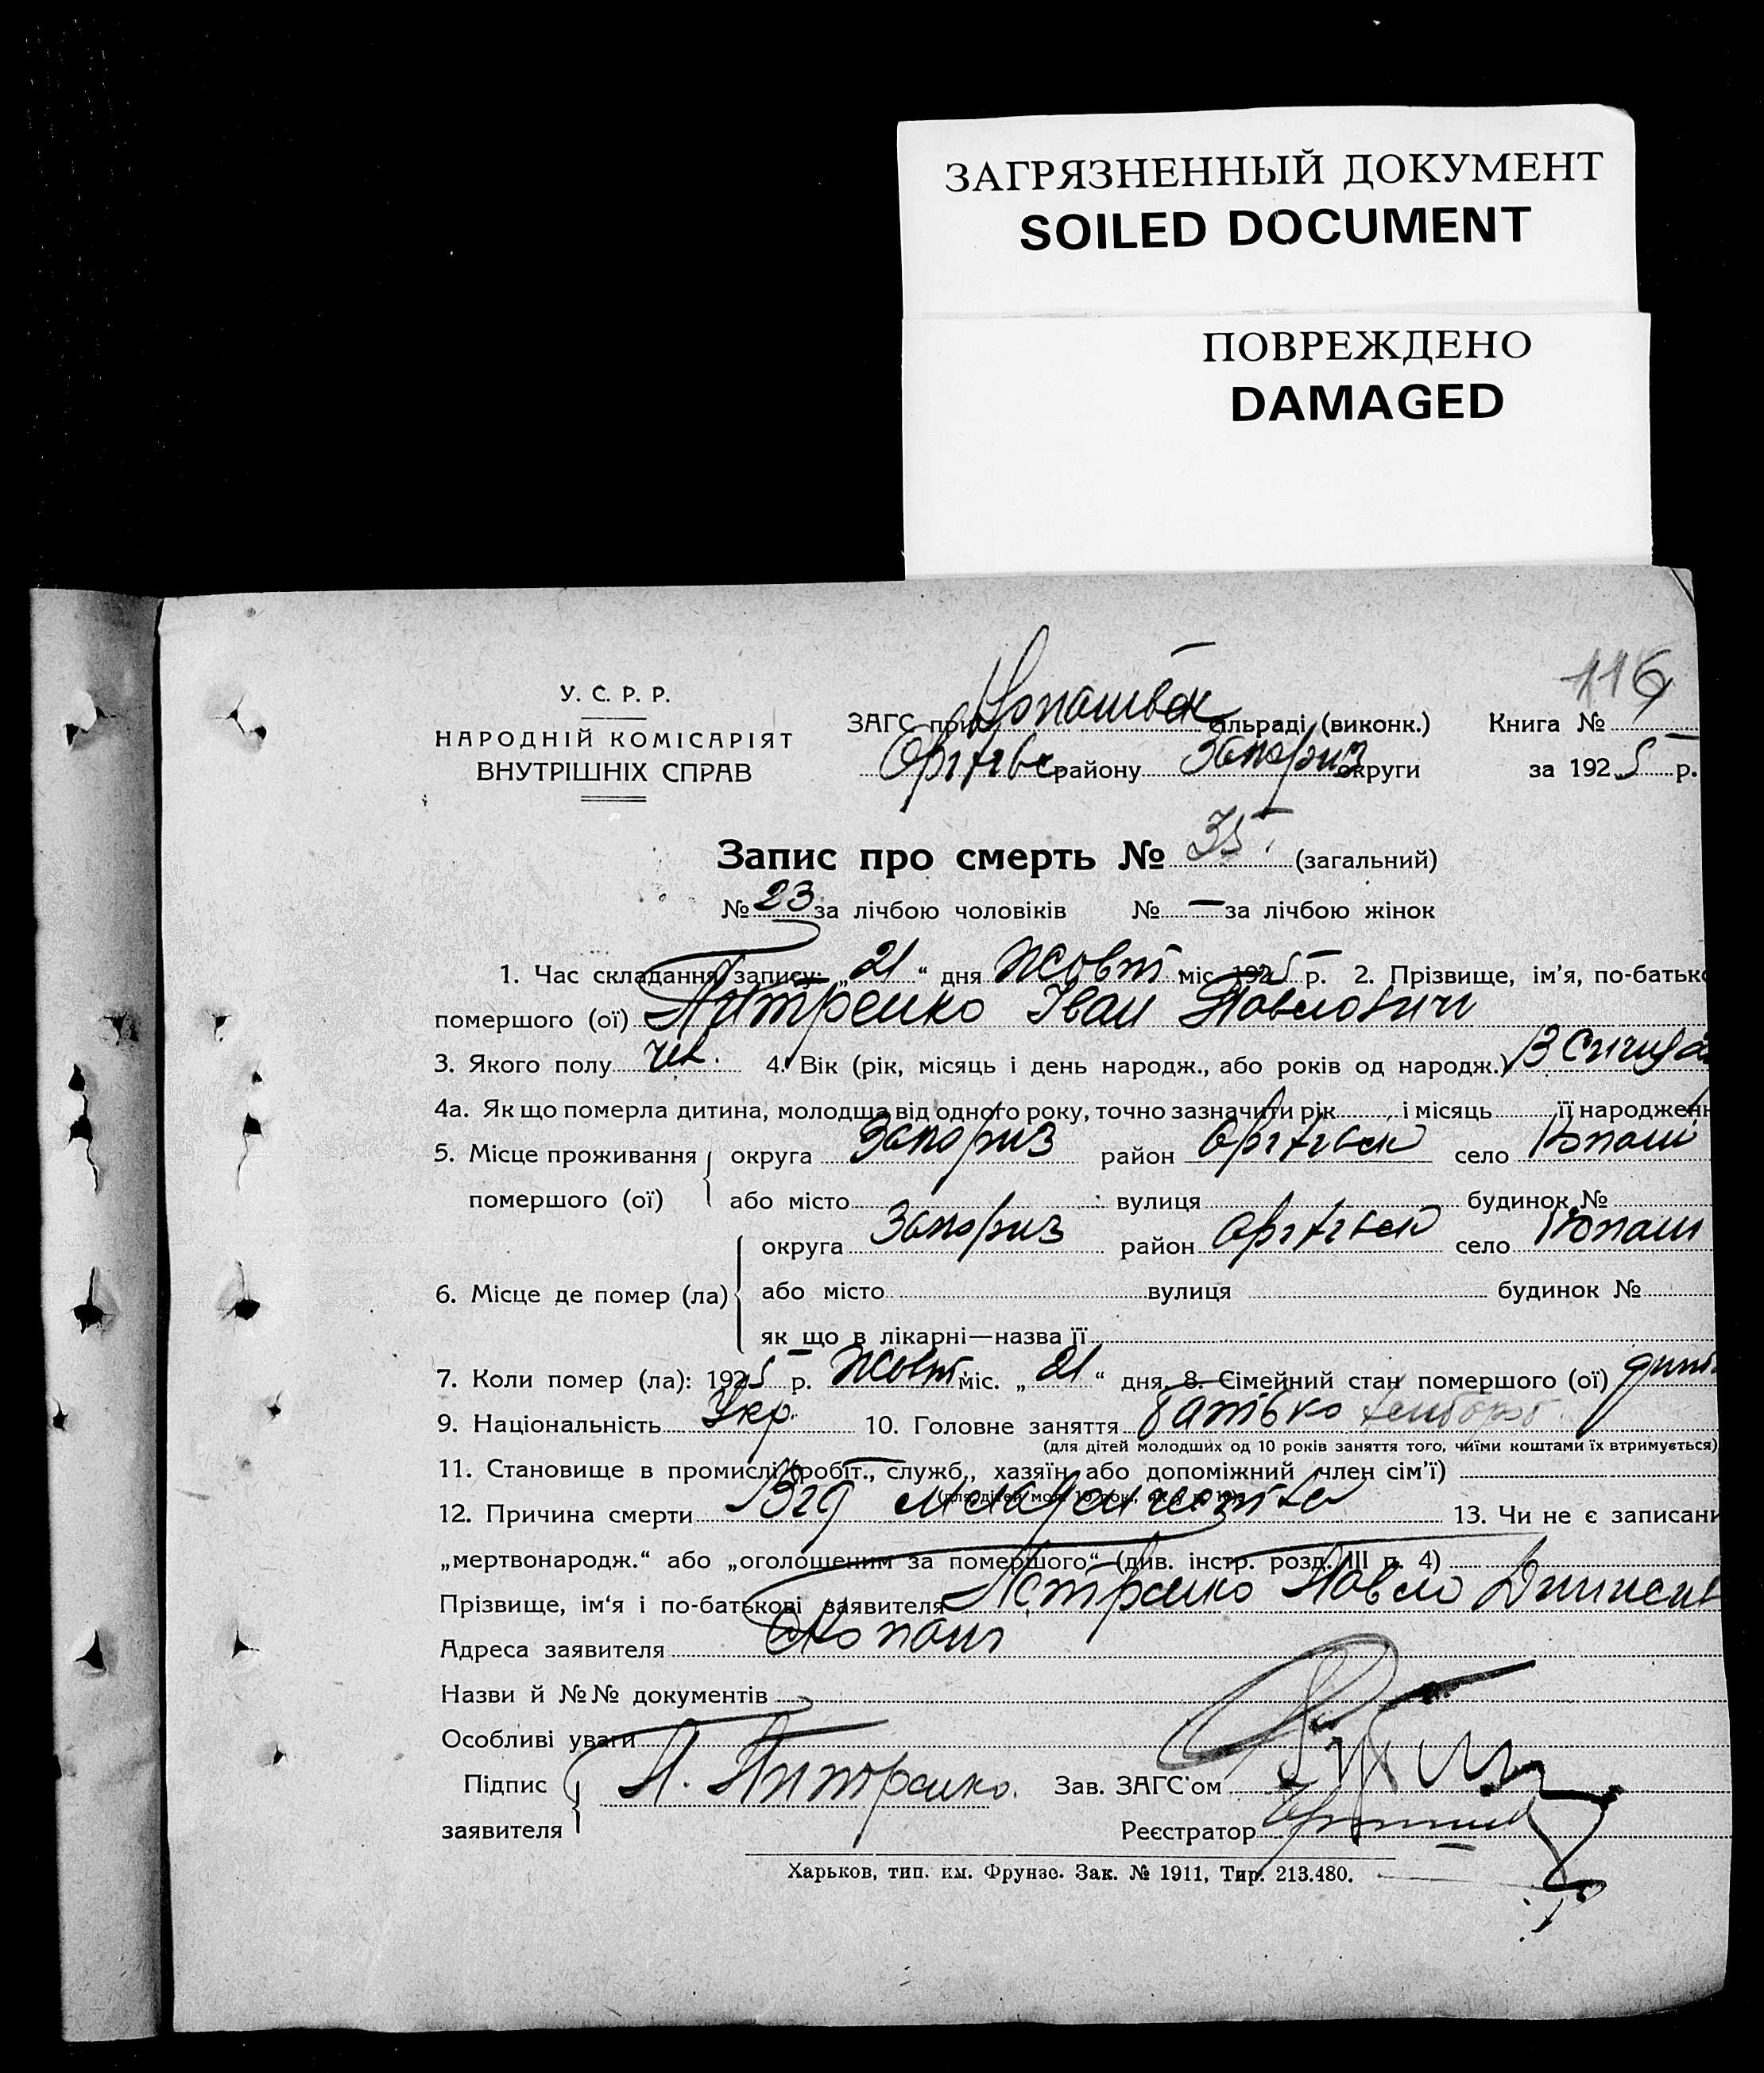 ЗАГРЯЗНЕННЫЙ ДОКУМЕНТ
SOILED DOCUMENT
ПОВРЕЖДЕНО
DAMAGED
116
У. С. Р. Р.
НАРОДНІЙ КОМІСАРІЯТ
ВНУТРІШНІХ СПРАВ
ЗАГС при Копанівск сільраді (виконк.) Книга №
району Запориз округи за 1925 р.
Запис про смерть № 35 (загальний)
№ 23 за лічбою чоловіків № — за лічбою жінок
1. Час складання запису: „21“ дня Жовт міс. 1925 р. 2. Прізвище, ім'я, по-батько
помершого (ої) Питренко Іван Павлович
3. Якого полу чол. 4. Вік (рік, місяць і день народж., або років од народж.)
4а. Як що померла дитина, молодща від одного року, точно зазначити рік і місяць її народженн
5. Місце проживання округа Запориз район село Копані
помершого (ої) або місто вулиця будинок №
округа Запориз район село Копані
6. Місце де помер (ла) або місто вулиця будинок №
як що в лікарні—назва її
7. Коли помер (ла): 1925 р. Жовт міс. „21“ дня 8. Сімейний стан помершого (ої) дит
9. Національність Укр. 10. Головне заняття батько хлібороб
(для дітей молодших од 10 років заняття того, чиїми коштами їх втримується)
11. Становище в промислі (робіт., служб., хазяїн або допоміжний член сім'ї)
12. Причина смерти Від 13. Чи не є записани
„мертвонародж.“ або „оголошеним за помершого“ (див. інстр. розд. III п. 4)
Прізвище, ім'я і по-батькові заявителя Петренко Павло
Адреса заявителя с Копані
Назви й №№ документів
Особливі уваги
Підпис П. Питренко. Зав. ЗАГС'ом
заявителя Реєстратор
Харьков, тип. им. Фрунзе. Зак. № 1911, Тир. 213.480.